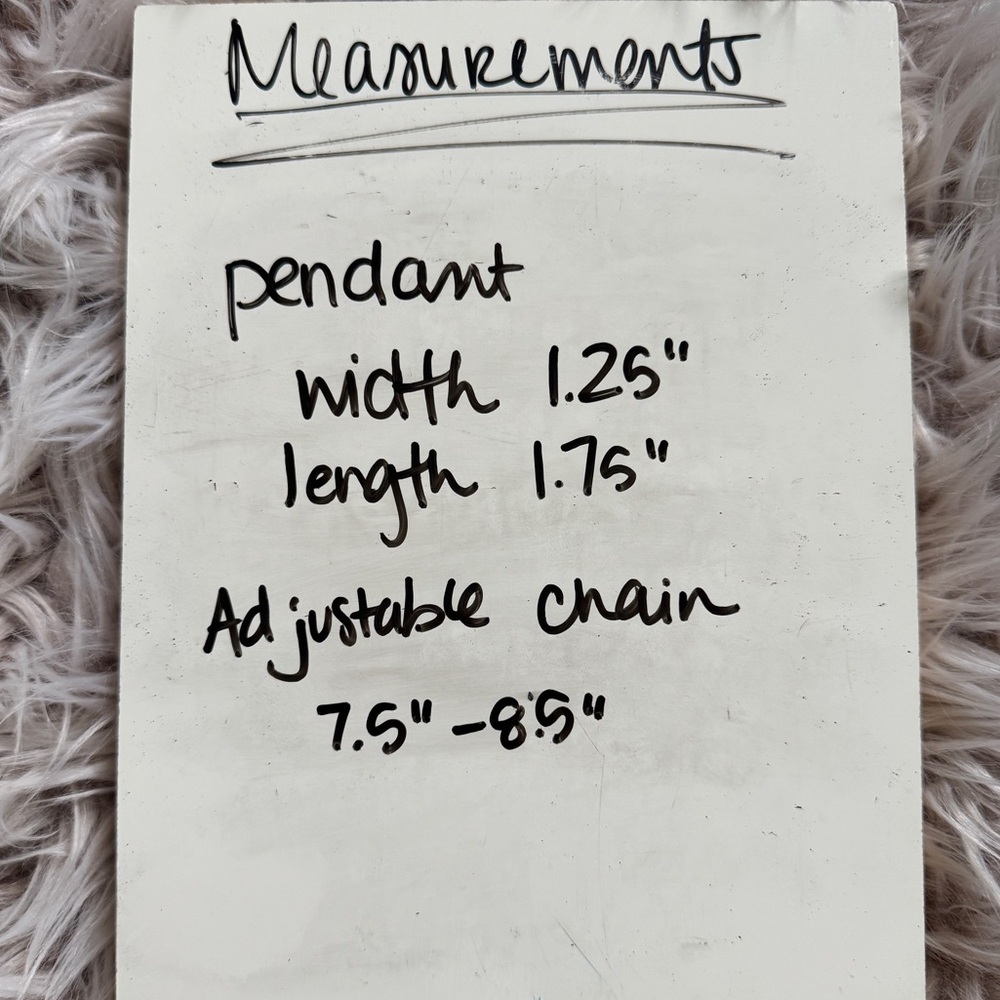 Measurements
pendant
width 1.25"
length 1.75"
Adjustable chain
7.5" - 8.5"